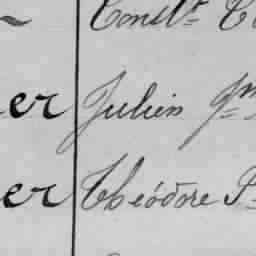 Constt
er Julien Jm
er Théodore P